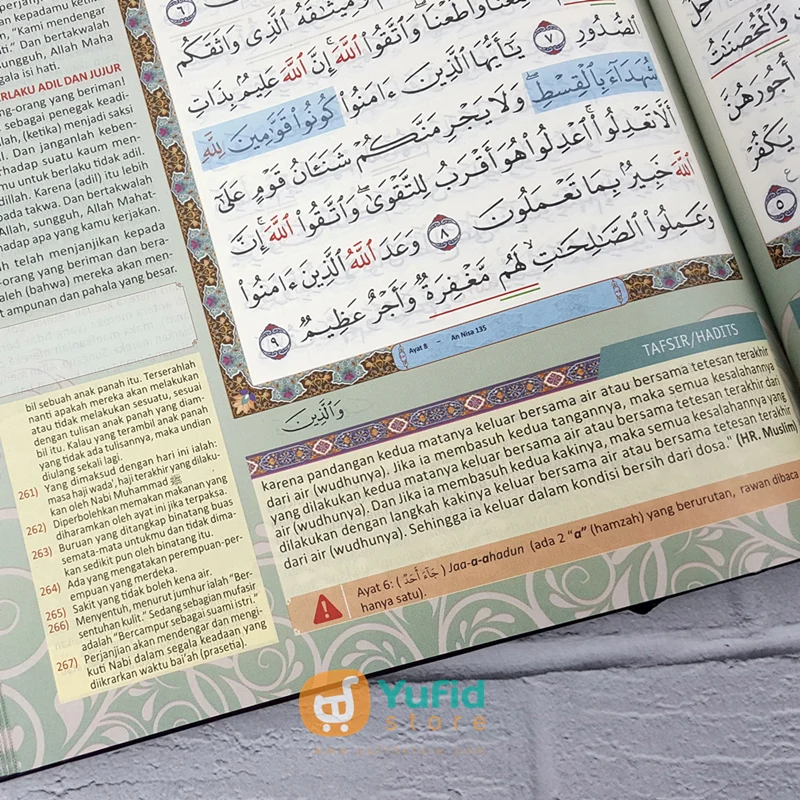 kepadamu ketika
"Kami mendengar
." Dan bertakwalah
sungguh, Allah Maha
gala isi hati.
ERLAKU ADIL DAN JUJUR
ng-orang yang beriman!
sebagai penegak keadi-
lah, (ketika) menjadi saksi
il. Dan janganlah keben-
rhadap suatu kaum men-
mu untuk berlaku tidak adil.
dillah. Karena (adil) itu lebih
pada takwa. Dan bertakwalah
Allah, sungguh, Allah Mahat-
hadap apa yang kamu kerjakan.
h telah menjanjikan kepada
-orang yang beriman dan bera-
aleh (bahwa) mereka akan men-
t ampunan dan pahala yang besar.
٦ وَمِيثَٰقَهُ ٱلَّذِى وَاثَقَكُم
سَمِعْنَا وَأَطَعْنَا ۖ وَٱتَّقُوا۟ ٱللَّهَ ۚ إِنَّ ٱللَّهَ عَلِيمٌۢ بِذَاتِ
ٱلصُّدُورِ ٧ يَٰٓأَيُّهَا ٱلَّذِينَ ءَامَنُوا۟ كُونُوا۟ قَوَّٰمِينَ لِلَّهِ
شُهَدَآءَ بِٱلْقِسْطِ ۖ وَلَا يَجْرِمَنَّكُمْ شَنَـَٔانُ قَوْمٍ عَلَىٰٓ
أَلَّا تَعْدِلُوا۟ ۚ ٱعْدِلُوا۟ هُوَ أَقْرَبُ لِلتَّقْوَىٰ ۖ وَٱتَّقُوا۟ ٱللَّهَ ۚ إِنَّ
ٱللَّهَ خَبِيرٌۢ بِمَا تَعْمَلُونَ ٨ وَعَدَ ٱللَّهُ ٱلَّذِينَ ءَامَنُوا۟
وَعَمِلُوا۟ ٱلصَّٰلِحَٰتِ ۙ لَهُم مَّغْفِرَةٌ وَأَجْرٌ عَظِيمٌ ٩
Ayat 8 - An Nisa 135
وَالَّذِينَ
وَٱلْمُحْصَنَٰتُ
أُجُورَهُنَّ
يَكْفُرْ
٥
bil sebuah anak panah itu. Terserahlah
nanti apakah mereka akan melakukan
atau tidak melakukan sesuatu, sesuai
dengan tulisan anak panah yang diam-
bil itu. Kalau yang terambil anak panah
yang tidak ada tulisannya, maka undian
diulang sekali lagi.
261) Yang dimaksud dengan hari ini ialah:
masa haji wada', haji terakhir yang dilaku-
kan oleh Nabi Muhammad ﷺ
262) Diperbolehkan memakan makanan yang
diharamkan oleh ayat ini jika terpaksa.
263) Buruan yang ditangkap binatang buas
semata-mata untukmu dan tidak dima-
kan sedikit pun oleh binatang itu.
264) Ada yang mengatakan perempuan-per-
empuan yang merdeka.
265) Sakit yang tidak boleh kena air.
266) Menyentuh, menurut jumhur ialah "Ber-
sentuhan kulit." Sedang sebagian mufasir
adalah "Bercampur sebagai suami istri."
267) Perjanjian akan mendengar dan mengi-
kuti Nabi dalam segala keadaan yang
diikrarkan waktu bai'ah (prasetia).
TAFSIR/HADITS
karena pandangan kedua matanya keluar bersama air atau bersama tetesan terakhir
dari air (wudhunya). Jika ia membasuh kedua tangannya, maka semua kesalahannya
yang dilakukan kedua matanya keluar bersama air atau bersama tetesan terakhir dari
air (wudhunya). Dan jika ia membasuh kedua kakinya, maka semua kesalahannya yang
dilakukan dengan langkah kakinya keluar bersama air atau bersama tetesan terakhir
dari air (wudhunya). Sehingga ia keluar dalam kondisi bersih dari dosa." (HR. Muslim)
Ayat 6: ( جَآءَ أَحَدٌ ) Jaa-a-ahadun (ada 2 "a" (hamzah) yang berurutan, rawan dibaca
hanya satu).
Yufid
store